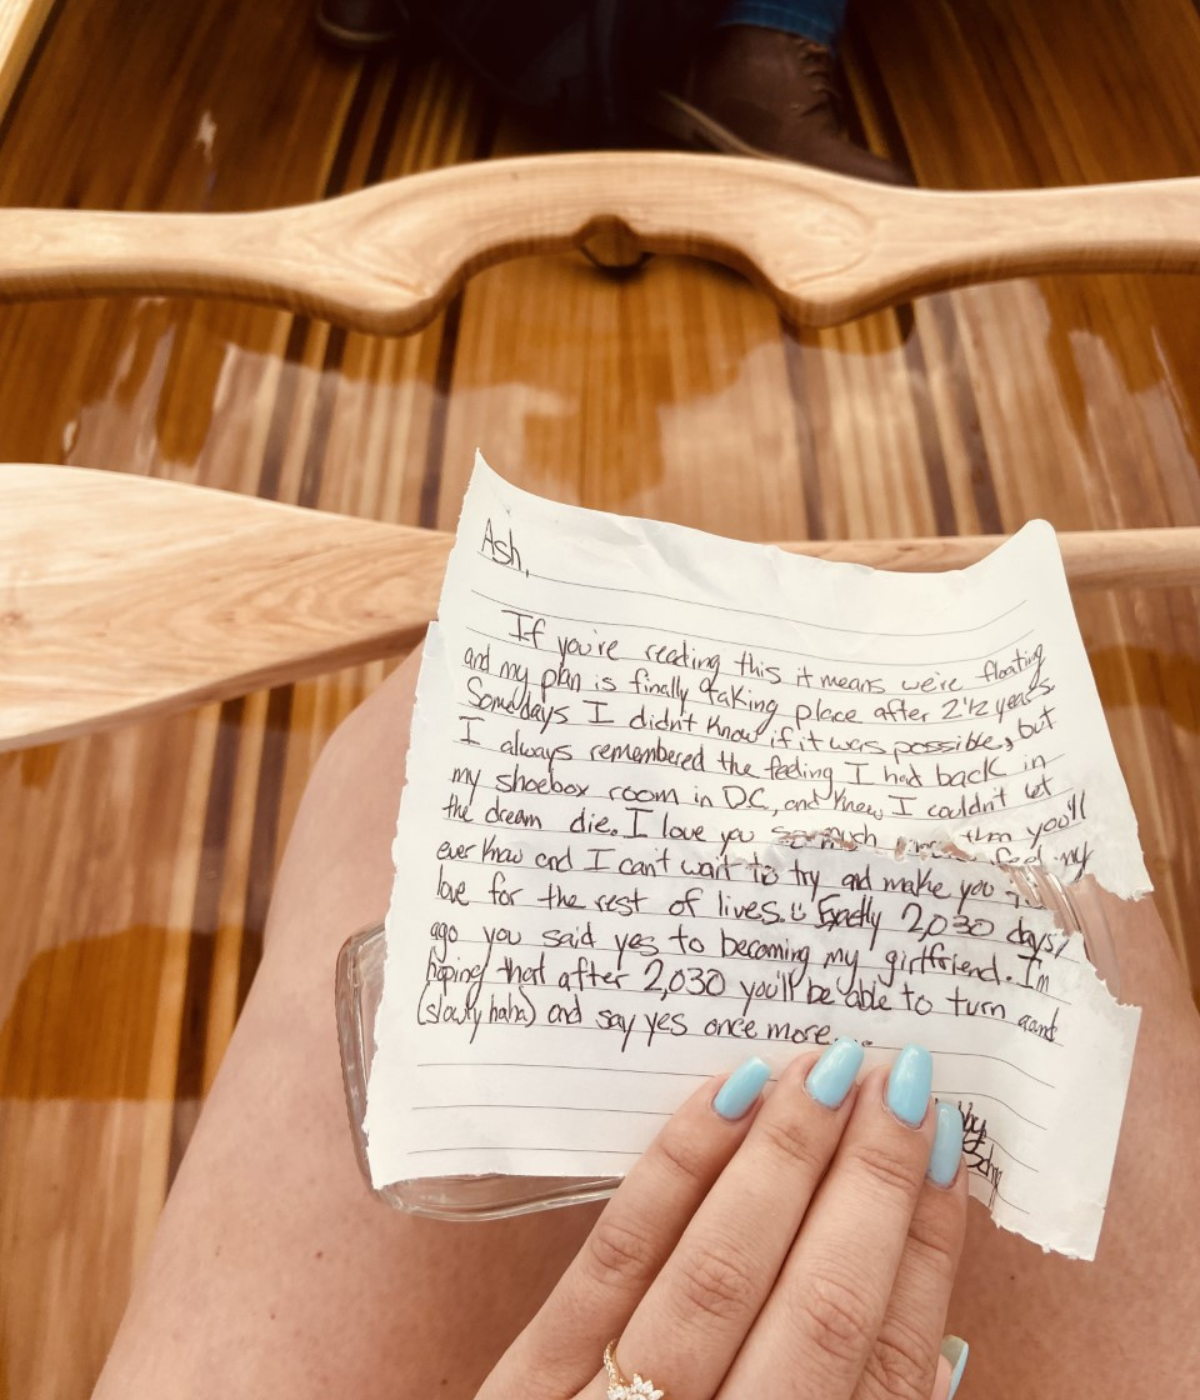 Ash,
If you're reading this it means we're floating
and my plan is finally taking place after 2 1/2 years.
Somedays I didn't know if it was possible, but
I always remembered the feeling I had back in
my shoebox room in D.C, and knew I couldn't let
the dream die. I love you so much than you'll
ever know and I can't wait to try and make you feel my
love for the rest of lives. Exactly 2,030 days
ago you said yes to becoming my girlfriend. I'm
hoping that after 2,030 you'll be able to turn
(slowly haha) and say yes once more...